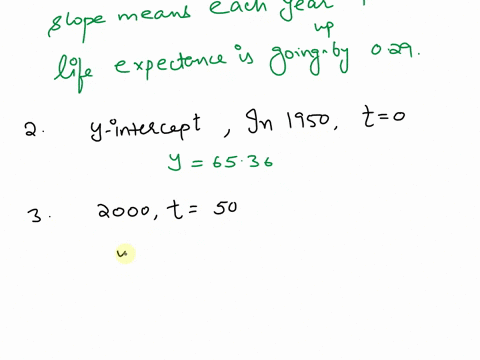 slope means each year
up
life expectence is going by 0.29.
2. y-intercept, In 1950, t=0
y = 65.36
3. 2000, t = 50